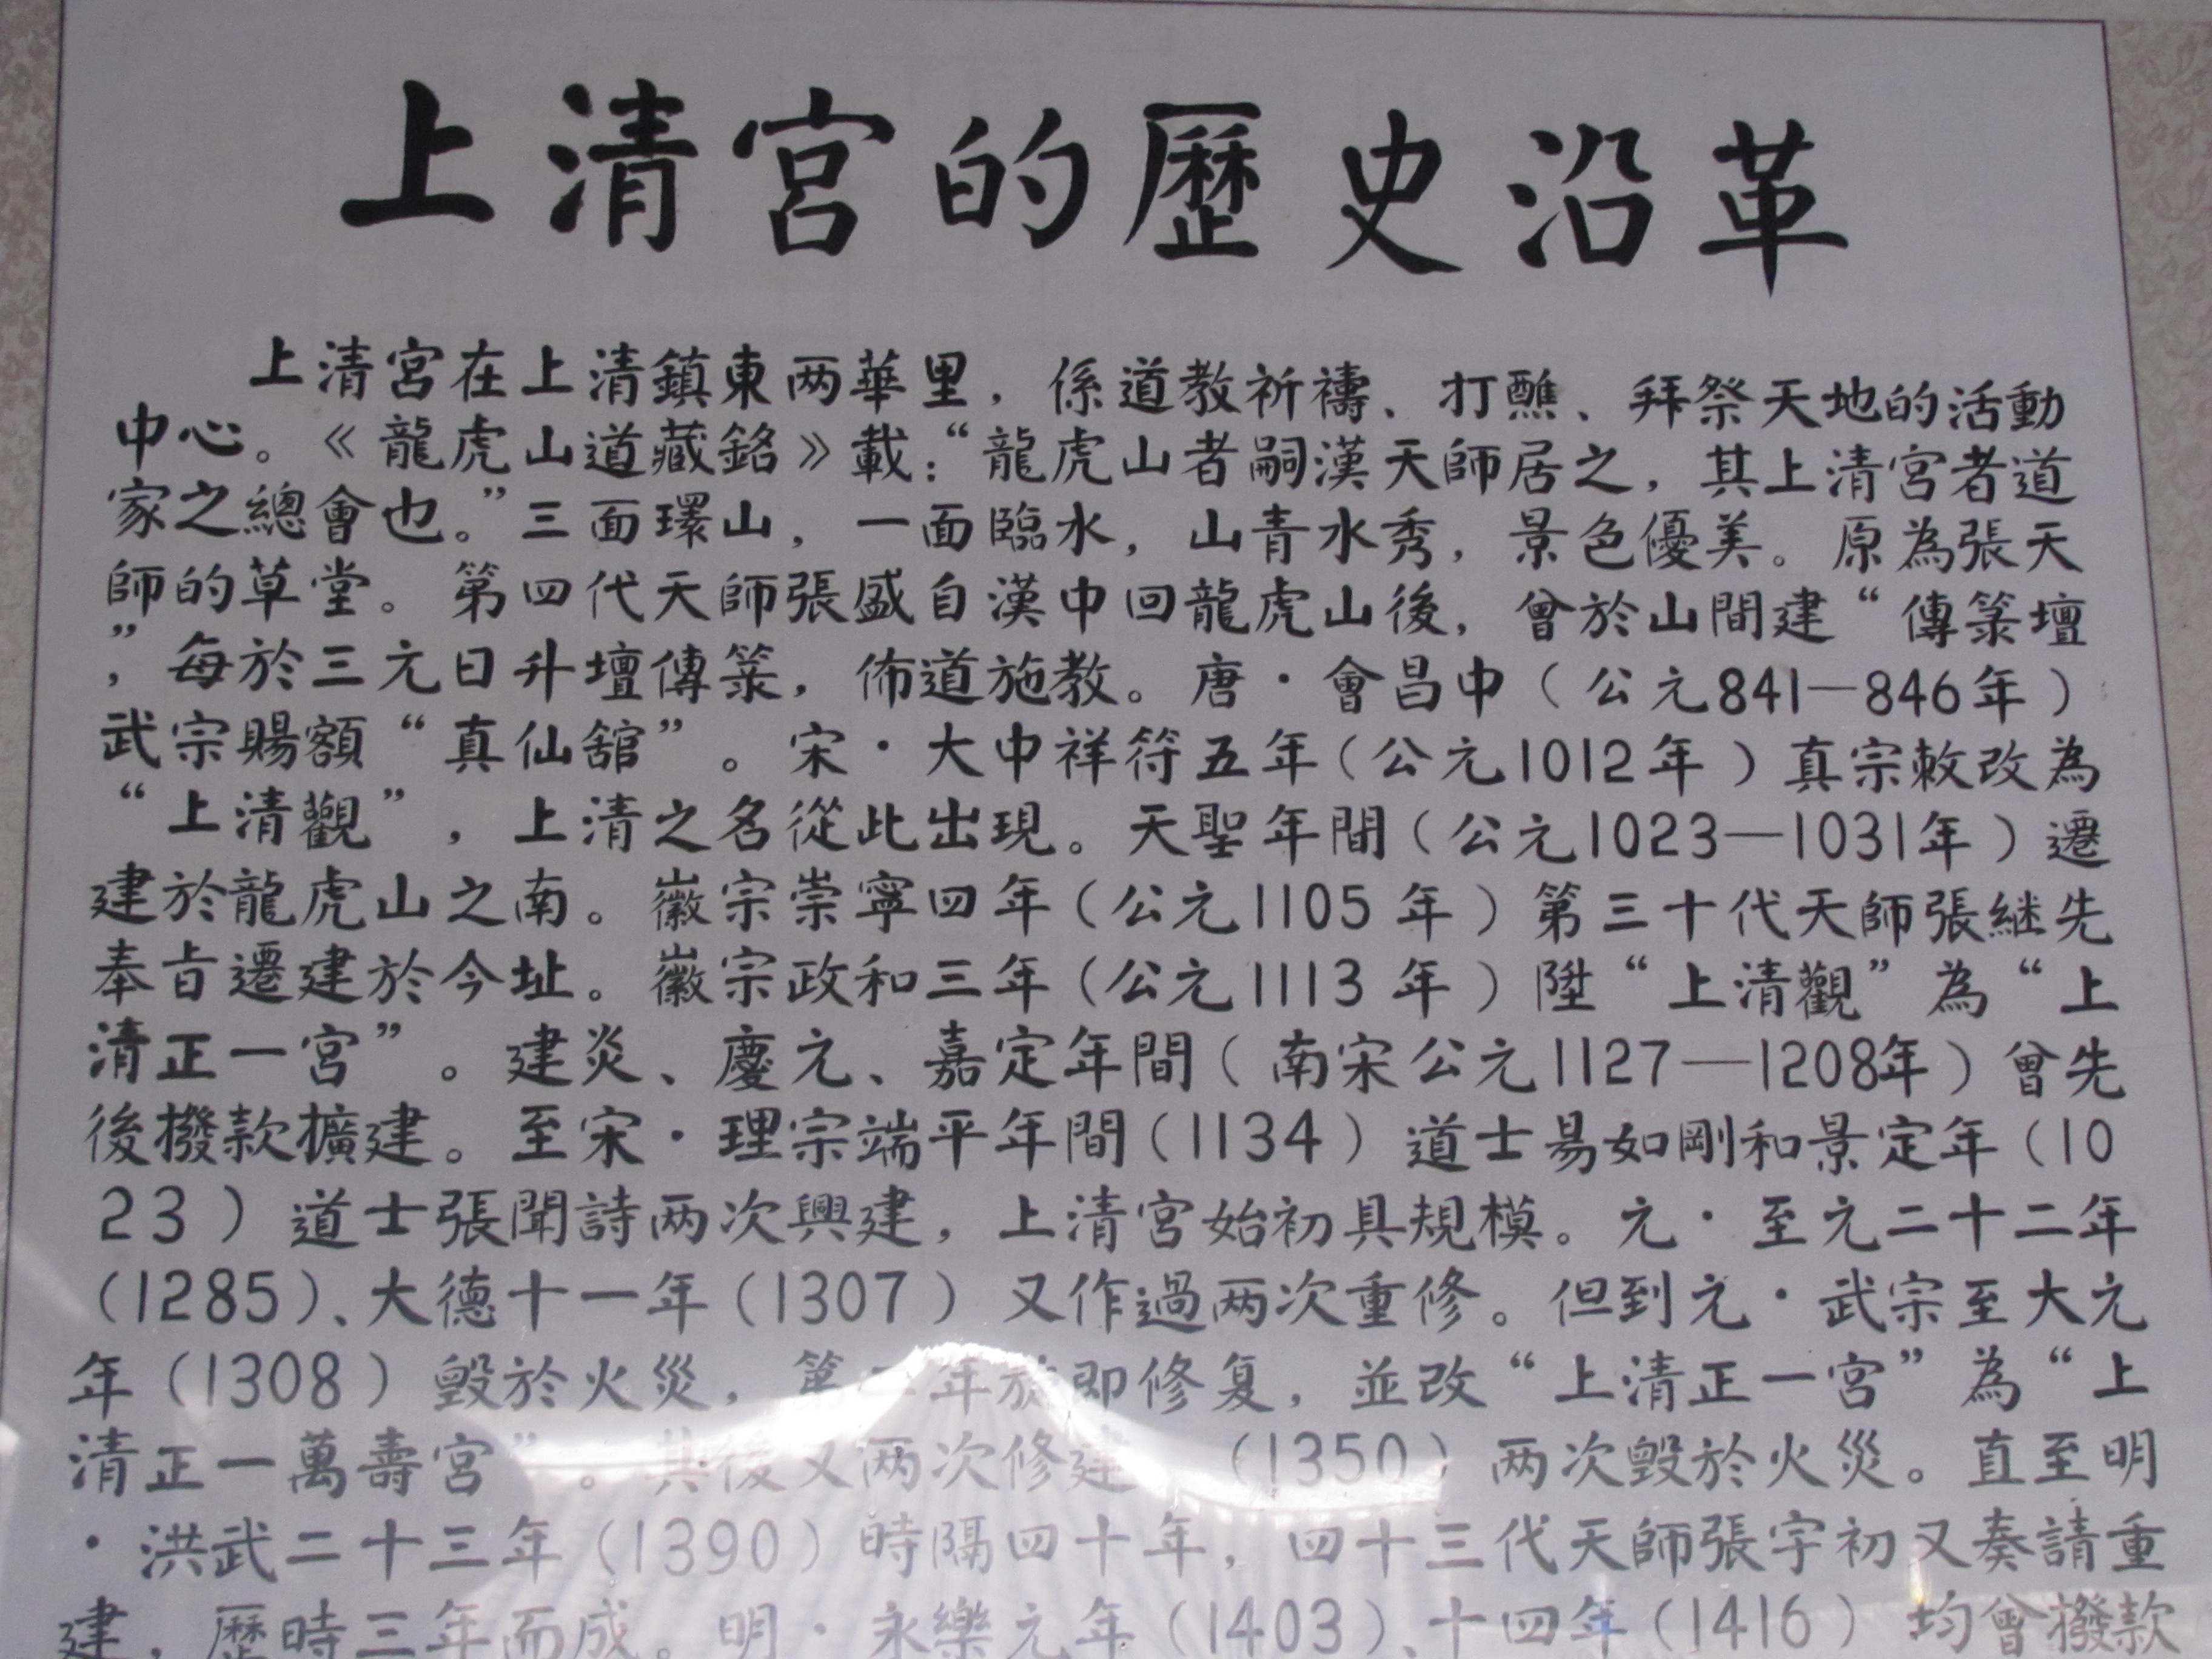 上清宮的歷史沿革
上清宮在上清鎮東两華里，係道教祈禱、打醮、拜祭天地的活動
中心。《龍虎山道藏銘》載：“龍虎山者嗣漢天師居之，其上清宮者道
家之總會也。”三面環山，一面臨水，山青水秀，景色優美。原為張天
師的草堂。第四代天師張盛自漢中回龍虎山後，曾於山間建“傳箓壇
”，每於三元日升壇傳箓，佈道施教。唐·會昌中（公元841—846年）
武宗賜額“真仙舘”。宋·大中祥符五年（公元1012年）真宗敕改為
“上清觀”，上清之名從此出現。天聖年間（公元1023—1031年）遷
建於龍虎山之南。徽宗崇寧四年（公元1105年）第三十代天師張継先
奉旨遷建於今址。徽宗政和三年（公元1113年）陞“上清觀”為“上
清正一宮”。建炎、慶元、嘉定年間（南宋公元1127—1208年）曾先
後撥款擴建。至宋·理宗端平年間（1134）道士易如剛和景定年（10
23）道士張聞詩两次興建，上清宮始初具規模。元·至元二十二年
（1285）、大德十一年（1307）又作過两次重修。但到元·武宗至大元
年（1308）毀於火災，第二年旋即修复，並改“上清正一宮”為“上
清正一萬壽宮”。其後又两次修建，（1350）两次毀於火災。直至明
·洪武二十三年（1390）時隔四十年，四十三代天師張宇初又奏請重
建，歷時三年而成。明·永樂元年（1403）、十四年（1416）均曾撥款